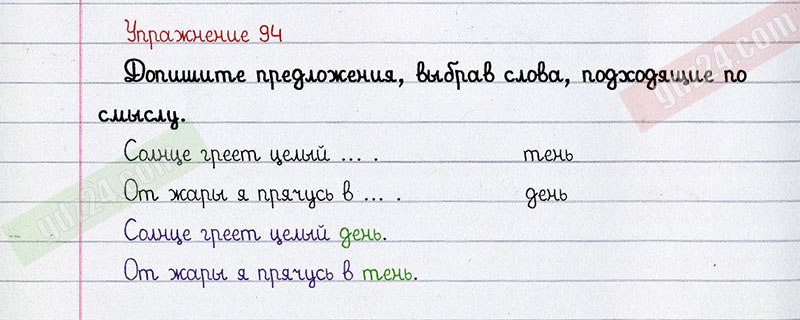 Упражнение 94
Допишите предложения, выбрав слова, подходящие по
смыслу.
Солнце греет целый ... . тень
От жары я прячусь в ... . день
Солнце греет целый день.
От жары я прячусь в тень.
gdz24.com
gdz24.com